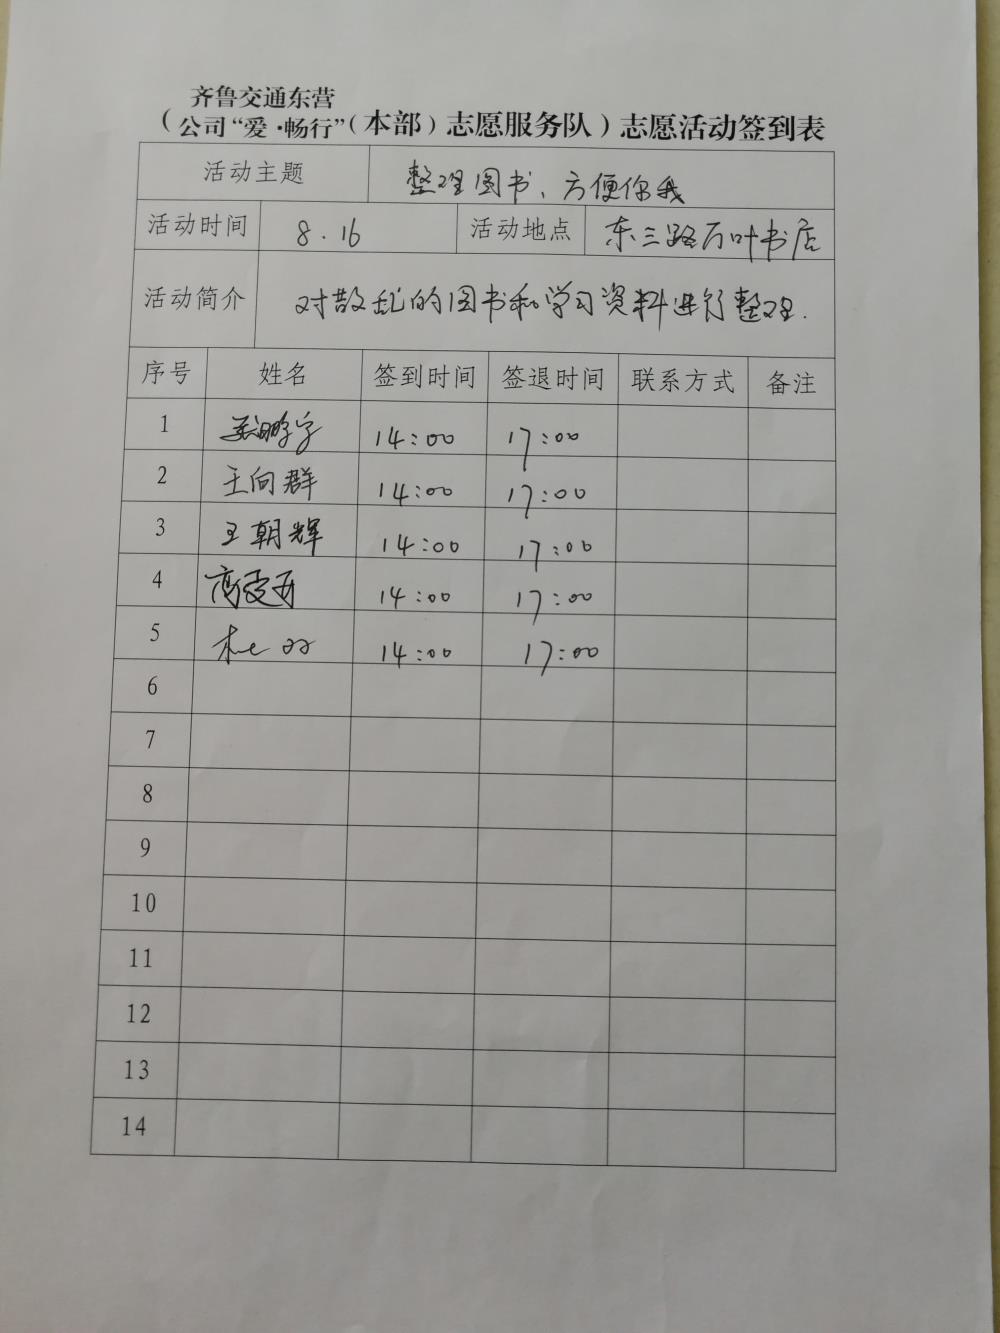 齐鲁交通东营
（公司“爱·畅行”（本部）志愿服务队）志愿活动签到表
活动主题 整理图书、方便你我
活动时间 8.16 活动地点 东三路万叶书店
活动简介 对散乱的图书和学习资料进行整理.
序号 姓名 签到时间 签退时间 联系方式 备注
1 14:00 17:00
2 王向群 14:00 17:00
3 王朝辉 14:00 17:00
4 14:00 17:00
5 14:00 17:00
6
7
8
9
10
11
12
13
14